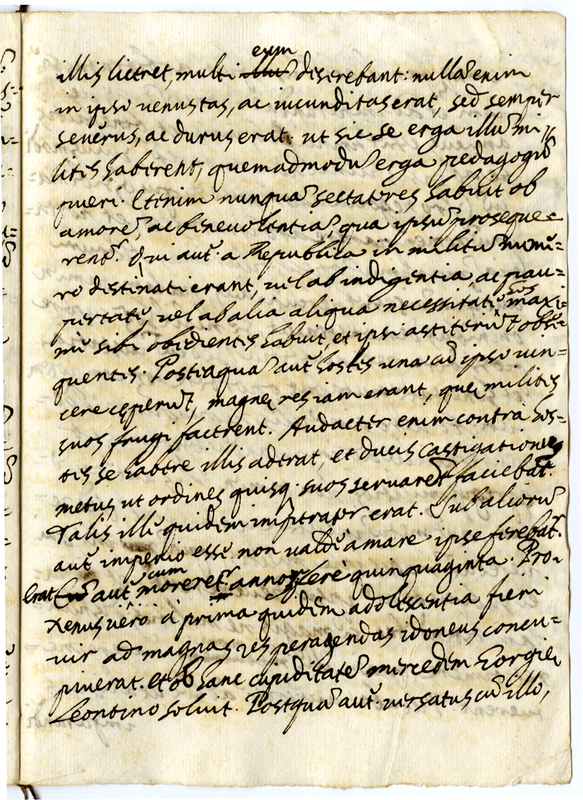 eum
illis liceret, multi illu̅ deserebant: nulla̅ enim
in ipso uenustas, ac iucunditas erat, sed semper
seuerus, ac durus erat. ut sic se erga illu̅ mi=
lites haberent, quemadmodu̅ erga pedagogu̅
pueri. Etenim nunqua̅ sectatores habuit ob
amore̅, ac beneuolentia̅, qua ipsu̅ proseque=
rent̅. Qui aut̅ a Republica in militu̅ nume=
ro destinati erant, uel ab indigentia, ac pau=
pertate, uel ab alia aliqua necessitate, eos maxi=
me sibi obedientes habuit, et ipsi astiteru̅t obse=
quentes. Postqua̅ aut̅ hostes una cu̅ ipso uin=
cere ceperu̅t, magnae res iam erant, quae milites
suos frugi facerent. Audacter enim contra hos=
tes se habere illis aderat, et ducis castigationes
metus ut ordines quisq. suos seruaret faciebat.
Talis ille quidem imperator erat. Sub alioru̅
aut̅ imperio esse non ualde amare ipse ferebat̅.
erat Cu̅ aut̅ cum moreret̅ annor̅ fere quinquaginta. Pro=
xenus uero a prima quidem adolescentia fieri
uir ad magnas res peragendas idoneus concu=
piuerat. et ob hanc cupiditate̅ mercedem Gorgiae
Leontino soluit. Postqua̅ aut̅ uersatus cu̅ illo,